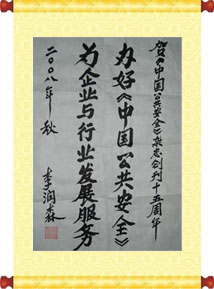 贺《中国公共安全》杂志创刊十五周年
办好《中国公共安全》
为企业与行业发展服务
二〇〇八年秋
李润森